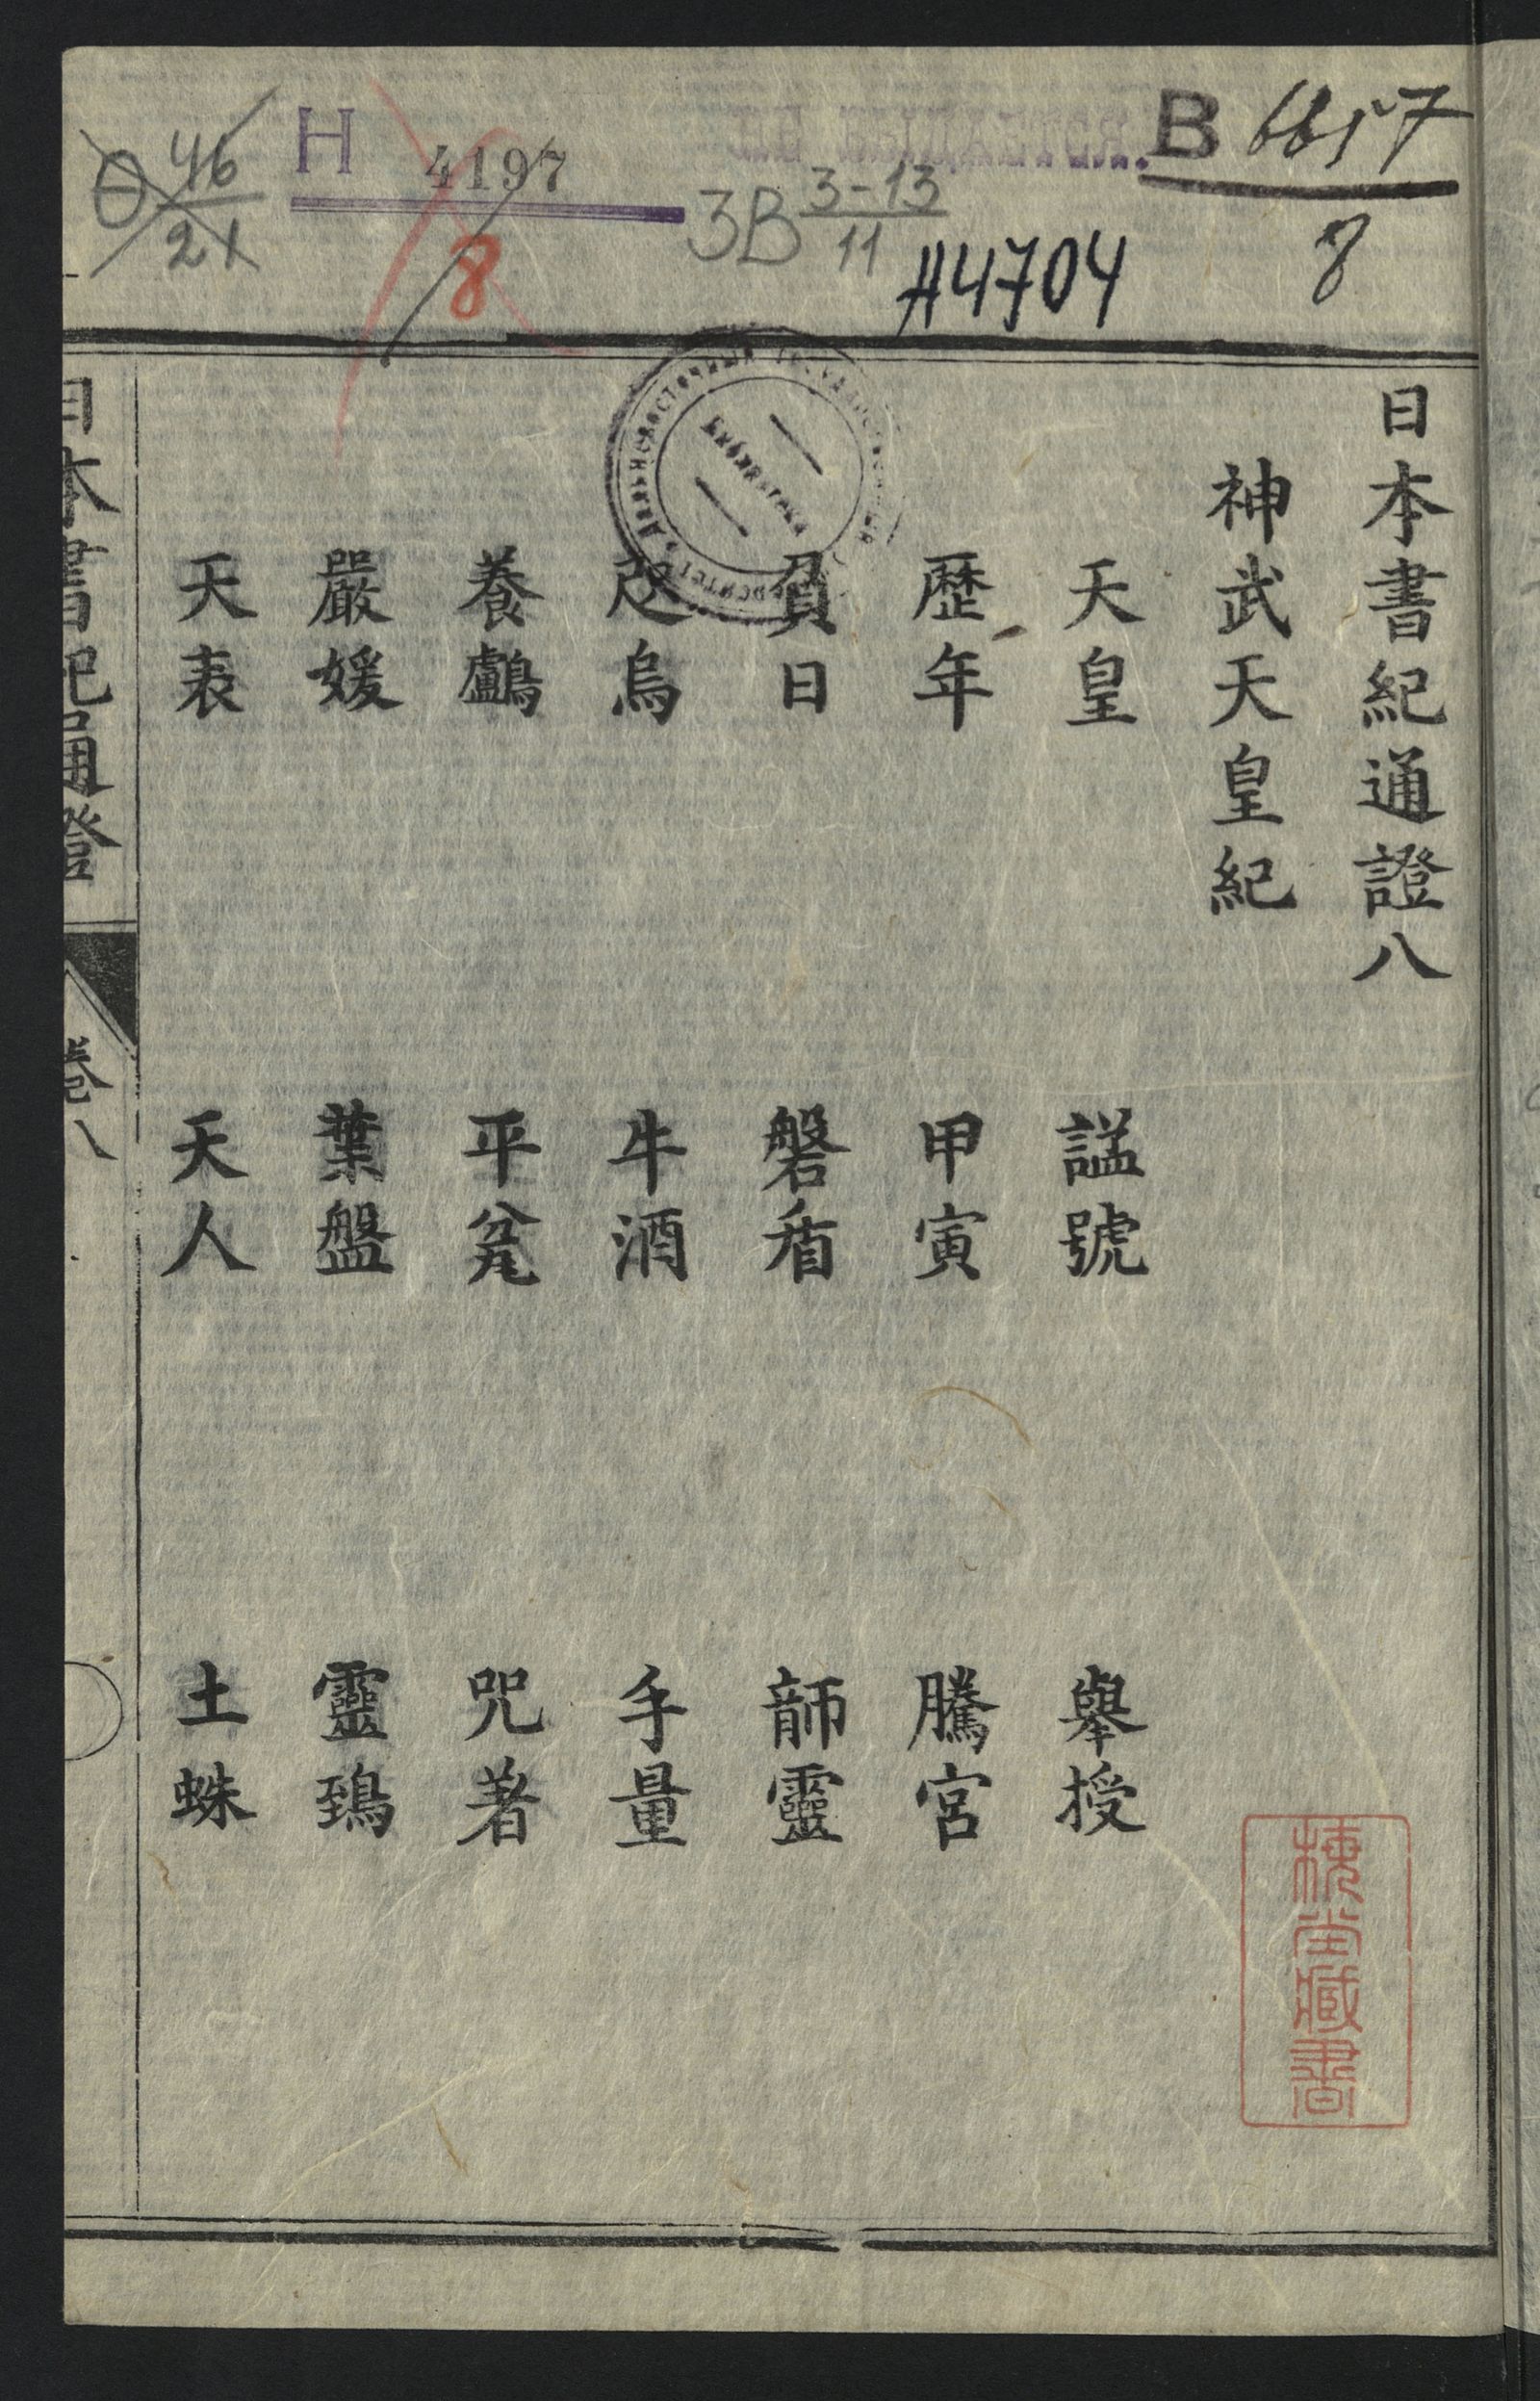 B 6657
8
H 4197
8
46
21
3В 3-13
11
Н4704
Библиотека
日本書紀通證八
神武天皇紀
天皇 諡號 舉授
歷年 甲寅 騰宮
負日 磐盾 韴靈
烏 牛酒 手量
養鸕 平瓮 咒著
嚴媛 葉盤 靈鵄
天表 天人 土蛛
日本書紀通證
卷八
藏書